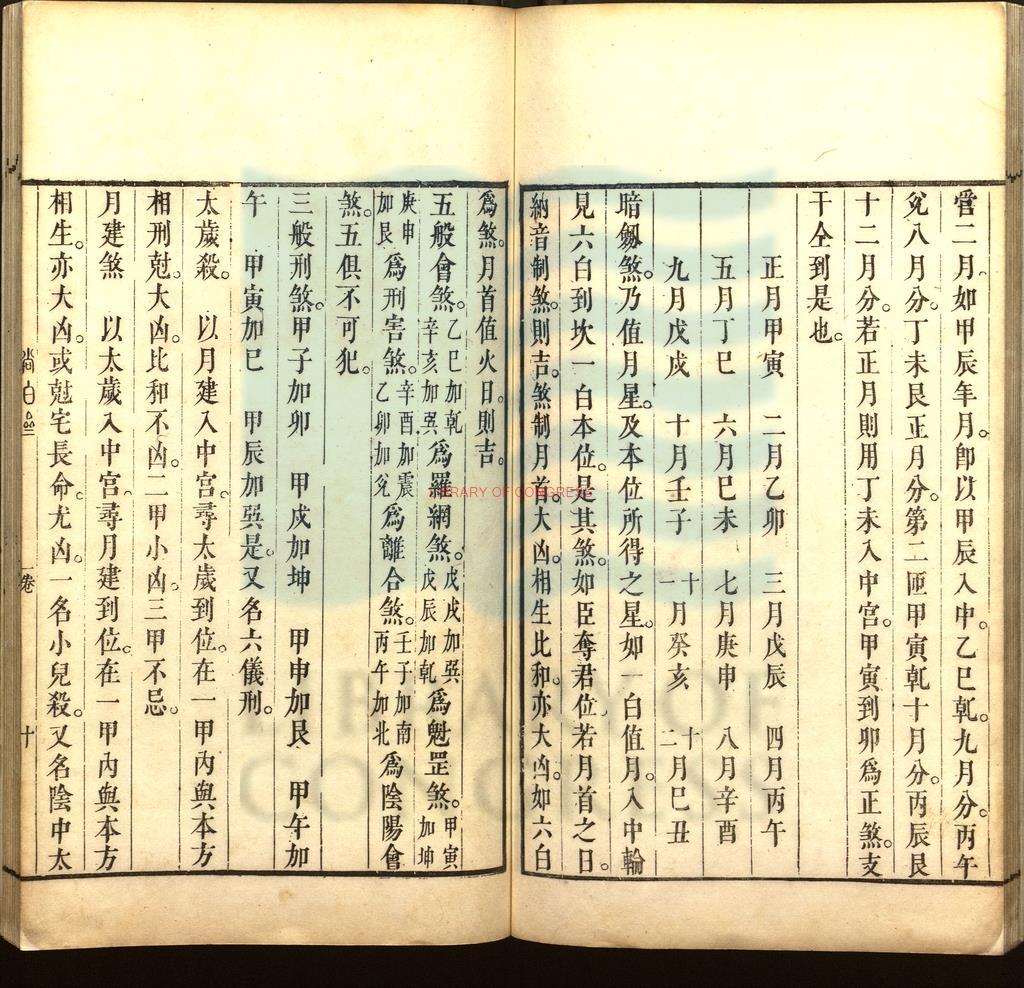 管二月。如甲辰年月。卽以甲辰入中。乙巳乹。九月分。丙午
兊八月分。丁未艮正月分。第二匝甲寅乹十月分。丙辰艮
十二月分。若正月則用丁未入中宮。甲寅到卯爲正煞。支
干仝到是也。
正月甲寅 二月乙卯 三月戊辰 四月丙午
五月丁巳 六月巳未 七月庚申 八月辛酉
九月戊戌 十月壬子 十一月癸亥 十二月巳丑
暗劒煞。乃值月星。及本位所得之星。如一白值月。入中輪
見六白到坎一白本位。是其煞。如臣奪君位。若月首之日。
納音制煞。則吉。煞制月首。大凶。相生比和。亦大凶。如六白
爲煞。月首值火日。則吉。
五般會煞。乙巳加乾辛亥加巽爲羅網煞。戊戌加巽戊辰加乾爲魁罡煞。甲寅加坤
庚申加艮爲刑害煞。辛酉加震乙卯加兊爲離合煞。壬子加南丙午加北爲陰陽會
煞。五俱不可犯。
三般刑煞。甲子加卯 甲戍加坤 甲申加艮 甲午加
午 甲寅加巳 甲辰加巽是。又名六儀刑。
太歲殺。 以月建入中宮。尋太歲到位。在一甲內與本方
相刑尅。大凶。比和不凶。二甲小凶。三甲不忌。
月建煞 以太歲入中宮。尋月建到位。在一甲內與本方
相生。亦大凶。或尅宅長命。尤凶。一名小兒殺。又名陰中太
一卷
十
LIBRARY OF CONGRESS